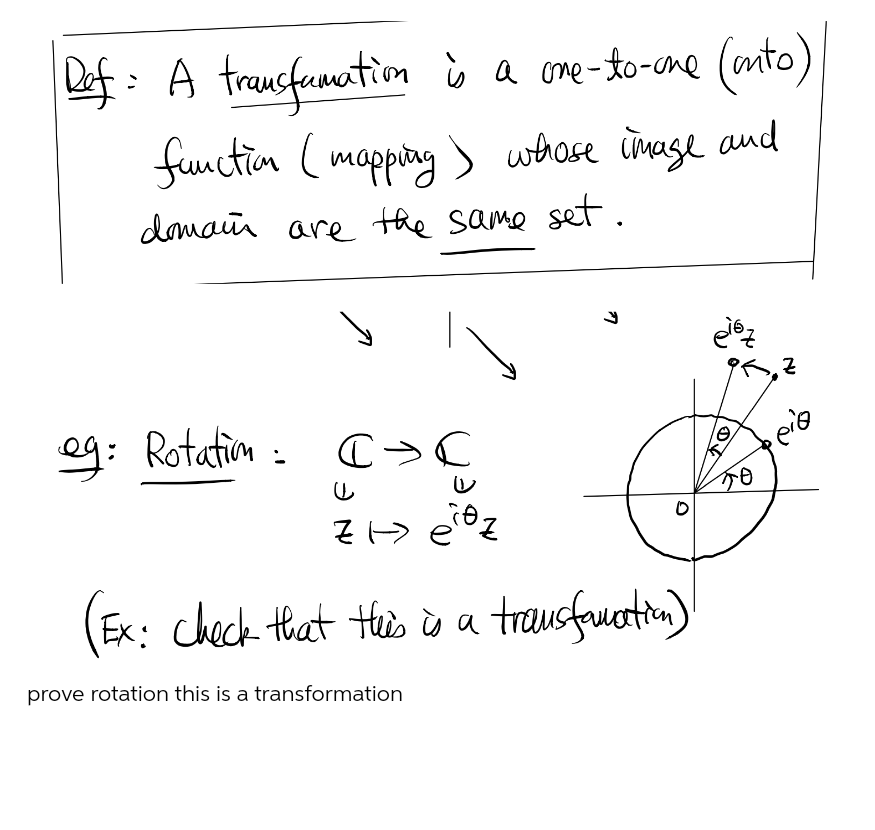 Def: A transformation is a one-to-one (onto)
function (mapping) whose image and
domain are the same set.
e^{iθ}z
z
e^{iθ}
θ
θ
0
eg: Rotation: ℂ → ℂ
z ↦ e^{iθ}z
(Ex: check that this is a transformation)
prove rotation this is a transformation